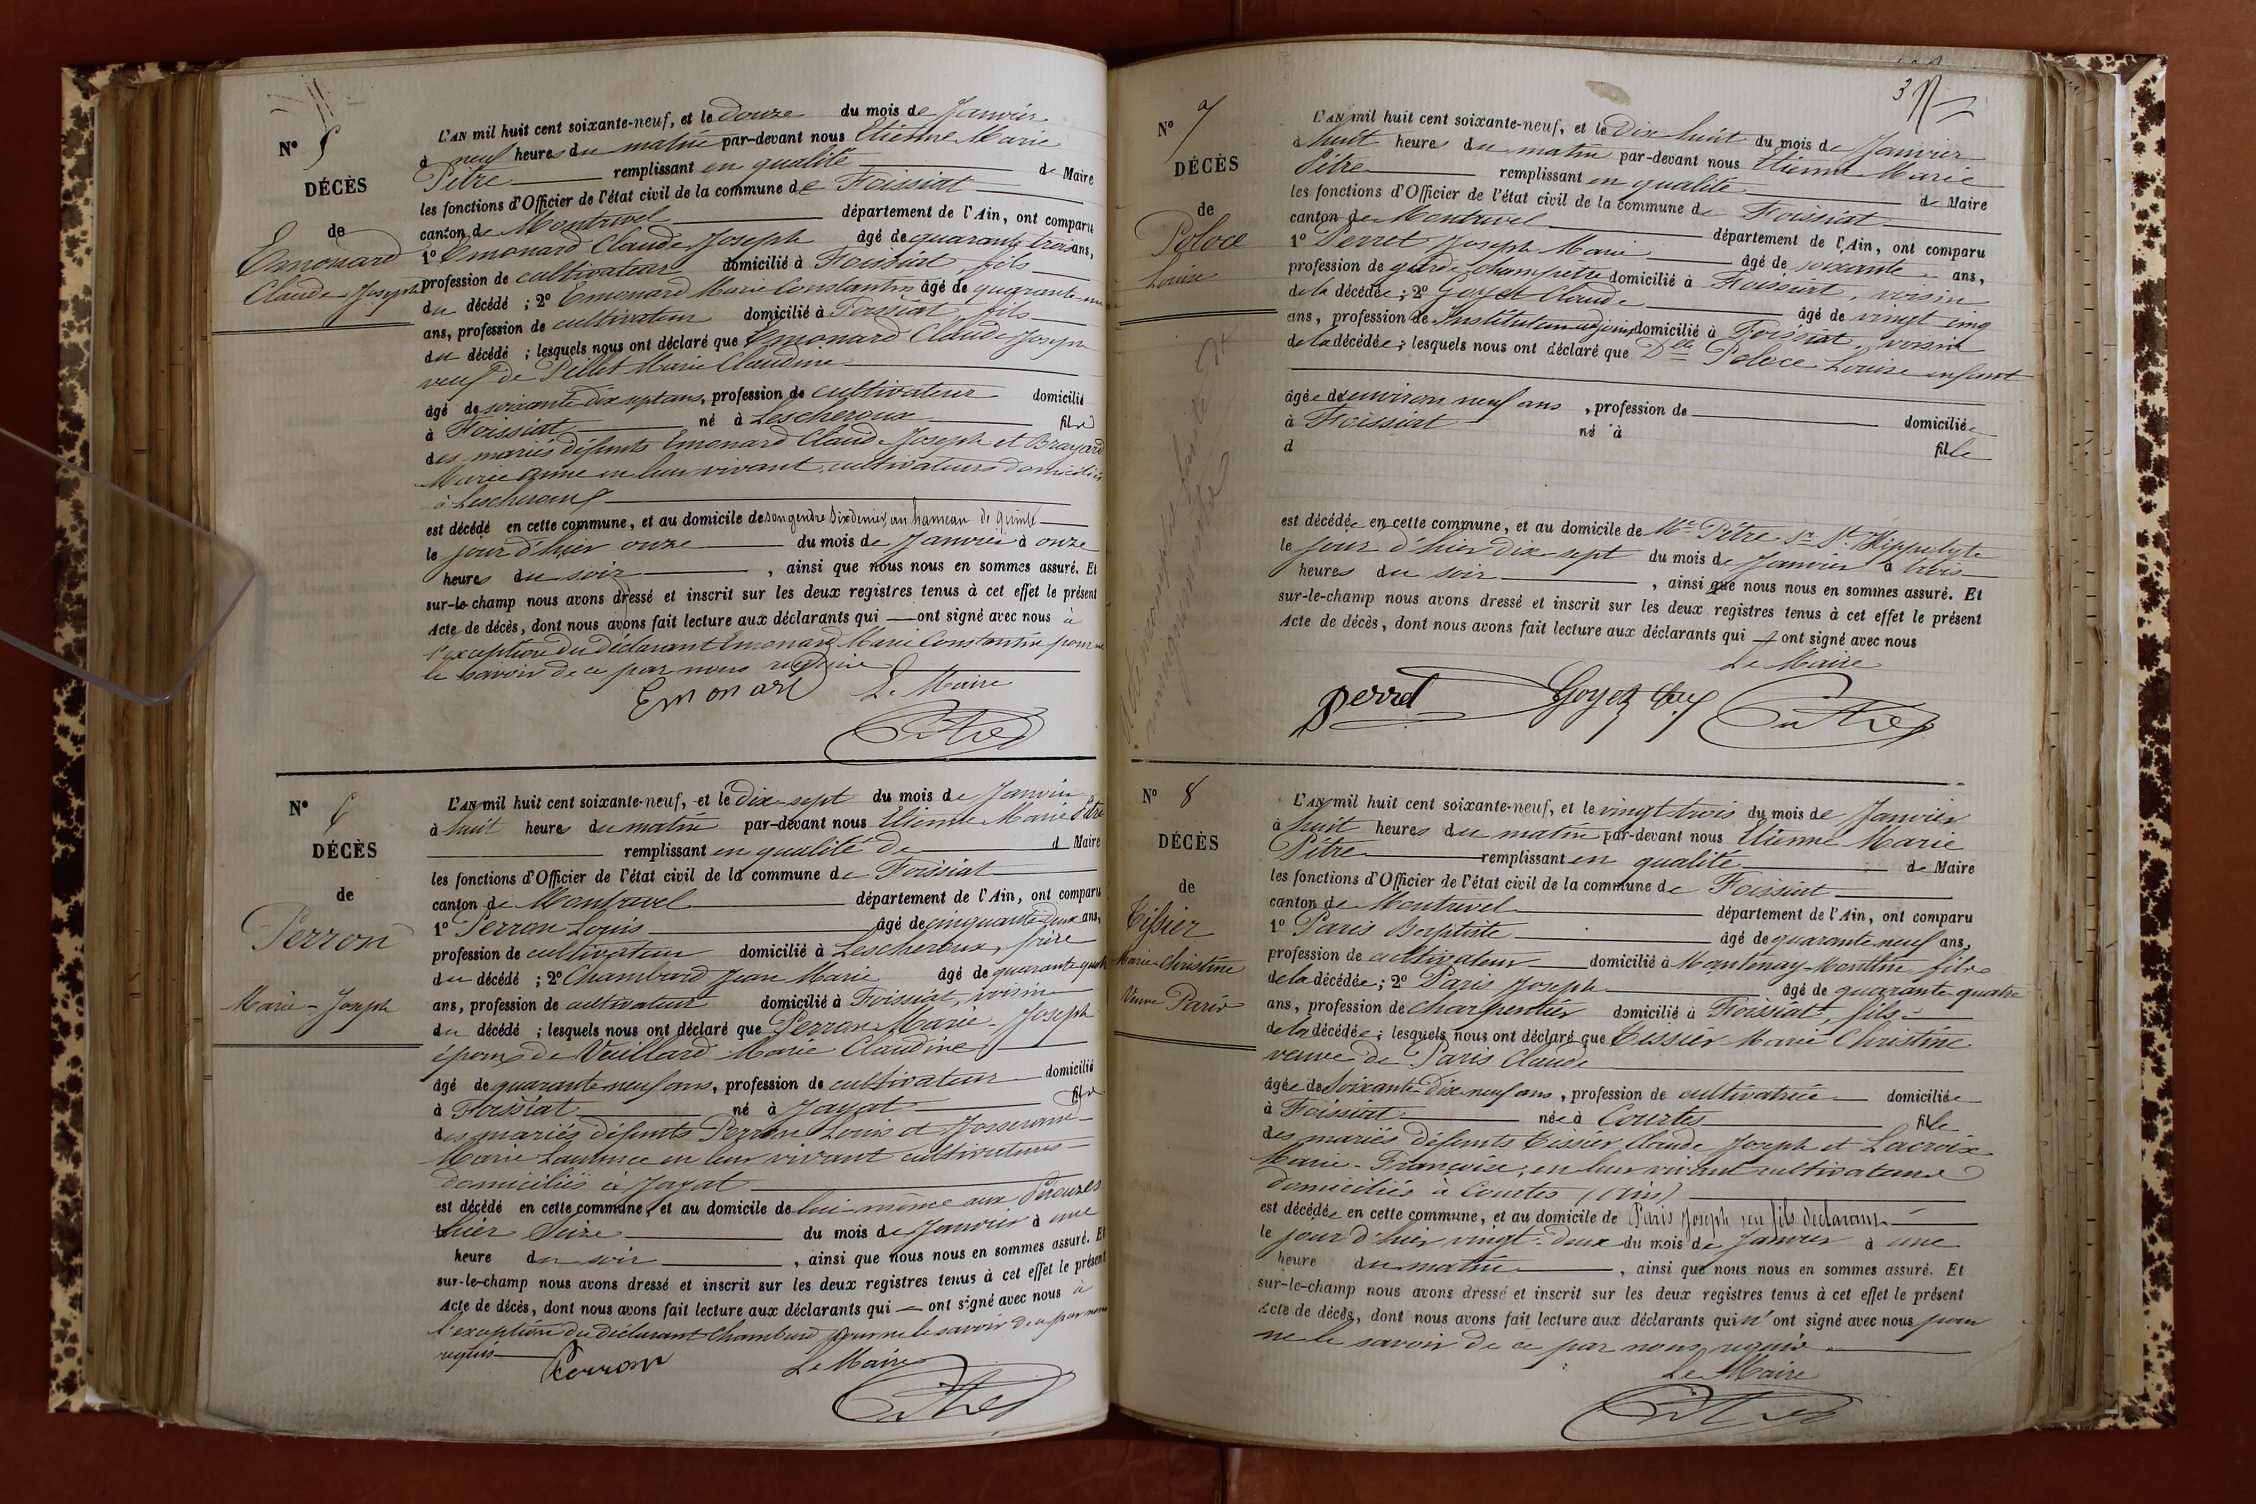 N° 5
DÉCÈS
de
Emonard
Claude Joseph
L'AN mil huit cent soixante-neuf, et le Douze du mois de Janvier
à neuf heures du matin par-devant nous Etienne Marie
Pitre remplissant en qualité de Maire
les fonctions d'Officier de l'état civil de la commune de Foissiat
canton de Montrevel département de l'Ain, ont comparu
1° Emonard Claude Joseph âgé de quarante trois ans,
profession de cultivateur domicilié à Foissiat, fils
du décédé ; 2° Emonard Marie Constantin âgé de quarante un
ans, profession de cultivateur domicilié à Foissiat, fils
du décédé ; lesquels nous ont déclaré que Emonard Claude Joseph
veuf de Pillet Marie Claudine
âgé de soixante dix sept ans, profession de cultivateur domicilié
à Foissiat né à Lescheroux fils
des mariés défunts Emonard Claude Joseph et Brayard
Marie Anne en leur vivant cultivateurs domiciliés
à Lescheroux
est décédé en cette commune, et au domicile de son gendre Sixdenier au hameau de
le jour d'hier onze du mois de Janvier à onze
heures du soir , ainsi que nous nous en sommes assuré. Et
sur-le-champ nous avons dressé et inscrit sur les deux registres tenus à cet effet le présent
Acte de décès, dont nous avons fait lecture aux déclarants qui — ont signé avec nous à
l'exception du déclarant Emonard Marie Constantin pour ne
le savoir de ce par nous requis
Emonard Le Maire
Pitre
N° 6
DÉCÈS
de
Perron
Marie-Joseph
L'AN mil huit cent soixante-neuf, et le Dix-sept du mois de Janvier
à huit heures du matin par-devant nous Etienne Marie Pitre
remplissant en qualité de d Maire
les fonctions d'Officier de l'état civil de la commune de Foissiat
canton de Montrevel département de l'Ain, ont comparu
1° Perron Louis âgé de cinquante deux ans,
profession de cultivateur domicilié à Lescheroux, frère
du décédé ; 2° Chambard Jean Marie âgé de quarante quatre
ans, profession de cultivateur domicilié à Foissiat, voisin
du décédé ; lesquels nous ont déclaré que Perron Marie-Joseph
époux de Vuillard Marie Claudine
âgé de quarante neuf ans, profession de cultivateur domicilié
à Foissiat né à Jayat fils
des mariés défunts Perron Louis et Josserand
Marie Laurence en leur vivant cultivateurs
domiciliés à Jayat
est décédé en cette commune, et au domicile de lui-même aux Perouzes
hier Seize du mois de Janvier à une
heure du soir , ainsi que nous nous en sommes assuré. Et
sur-le-champ nous avons dressé et inscrit sur les deux registres tenus à cet effet le présent
Acte de décès, dont nous avons fait lecture aux déclarants qui — ont signé avec nous à
l'exception du déclarant Chambard pour ne le savoir de ce par nous
requis
Perron Le Maire
Pitre
N° 7
DÉCÈS
de
Poloce
Louise
L'AN mil huit cent soixante-neuf, et le Dix huit du mois de Janvier
à huit heures du matin par-devant nous Etienne Marie
Pitre remplissant en qualité de Maire
les fonctions d'Officier de l'état civil de la commune de Foissiat
canton de Montrevel département de l'Ain, ont comparu
1° Perret Joseph Marie âgé de soixante ans,
profession de garde champetre domicilié à Foissiat, voisin
de la décédée ; 2° Goyet Claude âgé de vingt cinq
ans, profession de Instituteur adjoint domicilié à Foissiat, voisin
de la décédée ; lesquels nous ont déclaré que Dlle Poloce Louise enfant
âgée de environ neuf ans , profession de domiciliée
à Foissiat né à
d fille
est décédée en cette commune, et au domicile de Mr Pitre St Hippolyte
le jour d'hier dix-sept du mois de Janvier à trois
heures du soir , ainsi que nous nous en sommes assuré. Et
sur-le-champ nous avons dressé et inscrit sur les deux registres tenus à cet effet le présent
Acte de décès, dont nous avons fait lecture aux déclarants qui ont signé avec nous
Le Maire
Perret Goyet Pitre
N° 8
DÉCÈS
de
Tissier
Marie-Christine
Veuve Paris
L'AN mil huit cent soixante-neuf, et le vingt trois du mois de Janvier
à huit heures du matin par-devant nous Etienne Marie
Pitre remplissant en qualité de Maire
les fonctions d'Officier de l'état civil de la commune de Foissiat
canton de Montrevel département de l'Ain, ont comparu
1° Paris Baptiste âgé de quarante neuf ans,
profession de cultivateur domicilié à Mantenay-Montlin fils
de la décédée ; 2° Paris Joseph âgé de quarante quatre
ans, profession de charpentier domicilié à Foissiat, fils
de la décédée ; lesquels nous ont déclaré que Tissier Marie Christine
veuve de Paris Claude
âgée de Soixante-dix neuf ans , profession de cultivatrice domiciliée
à Foissiat née à Courtes fille
des mariés défunts Tissier Claude Joseph et Lacroix
Marie-Françoise, en leur vivant cultivateurs
domiciliés à Courtes (Ain)
est décédée en cette commune, et au domicile de Paris Joseph son fils déclarant
le jour d'hier vingt-deux du mois de Janvier à une
heure du matin , ainsi que nous nous en sommes assuré. Et
sur-le-champ nous avons dressé et inscrit sur les deux registres tenus à cet effet le présent
Acte de décès, dont nous avons fait lecture aux déclarants qui n'ont signé avec nous pour
ne le savoir de ce par nous requis
Le Maire
Pitre